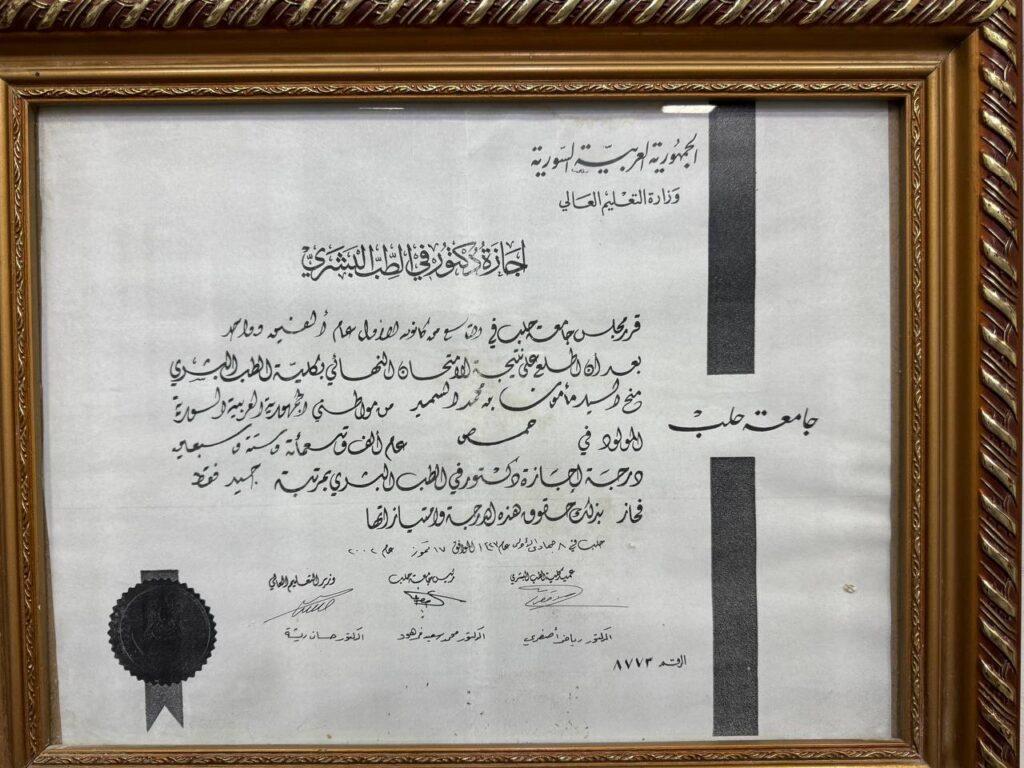 الجمهورية العربية السورية
وزارة التعليم العالي
اجازة دكتور في الطب البشري
قرر مجلس جامعة حلب في التاسع من كانون الأول عام ألفين وواحد
بعد ان اطلع على نتيجة الامتحان النهائي بكلية الطب البشري
منح السيد مأمون بن محمد السمير من مواطني الجمهورية العربية السورية
المولود في حمص عام ألف وتسعمائة وستة وسبعين
درجة إجازة دكتور في الطب البشري بمرتبة جيد فقط
فحاز بذلك حقوق هذه الدرجة وامتيازاتها
جامعة حلب
حلب في ٨ جمادى الأولى عام ١٤٢٣ الموافق ١٧ تموز عام ٢٠٠٢
عميد كلية الطب البشري
رئيس جامعة حلب
وزير التعليم العالي
الدكتور رياض أصفري
الدكتور محمد سعيد فرهود
الدكتور حسان ريشة
الرقم ٨٧٧٣